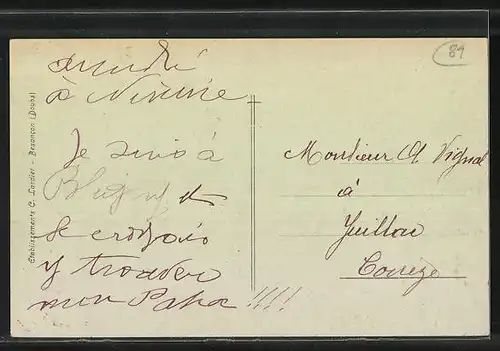 André
à Ninine
Je suis à
Bligny et
Je croyais
y trouver
mon Papa !!!!
Monsieur A Vignal
à
Juillac
Correze
Etablissements C. Lardier - Besançon (Doubs)